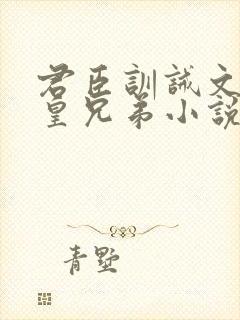 君臣訓誡文
皇兄弟小說
青墅